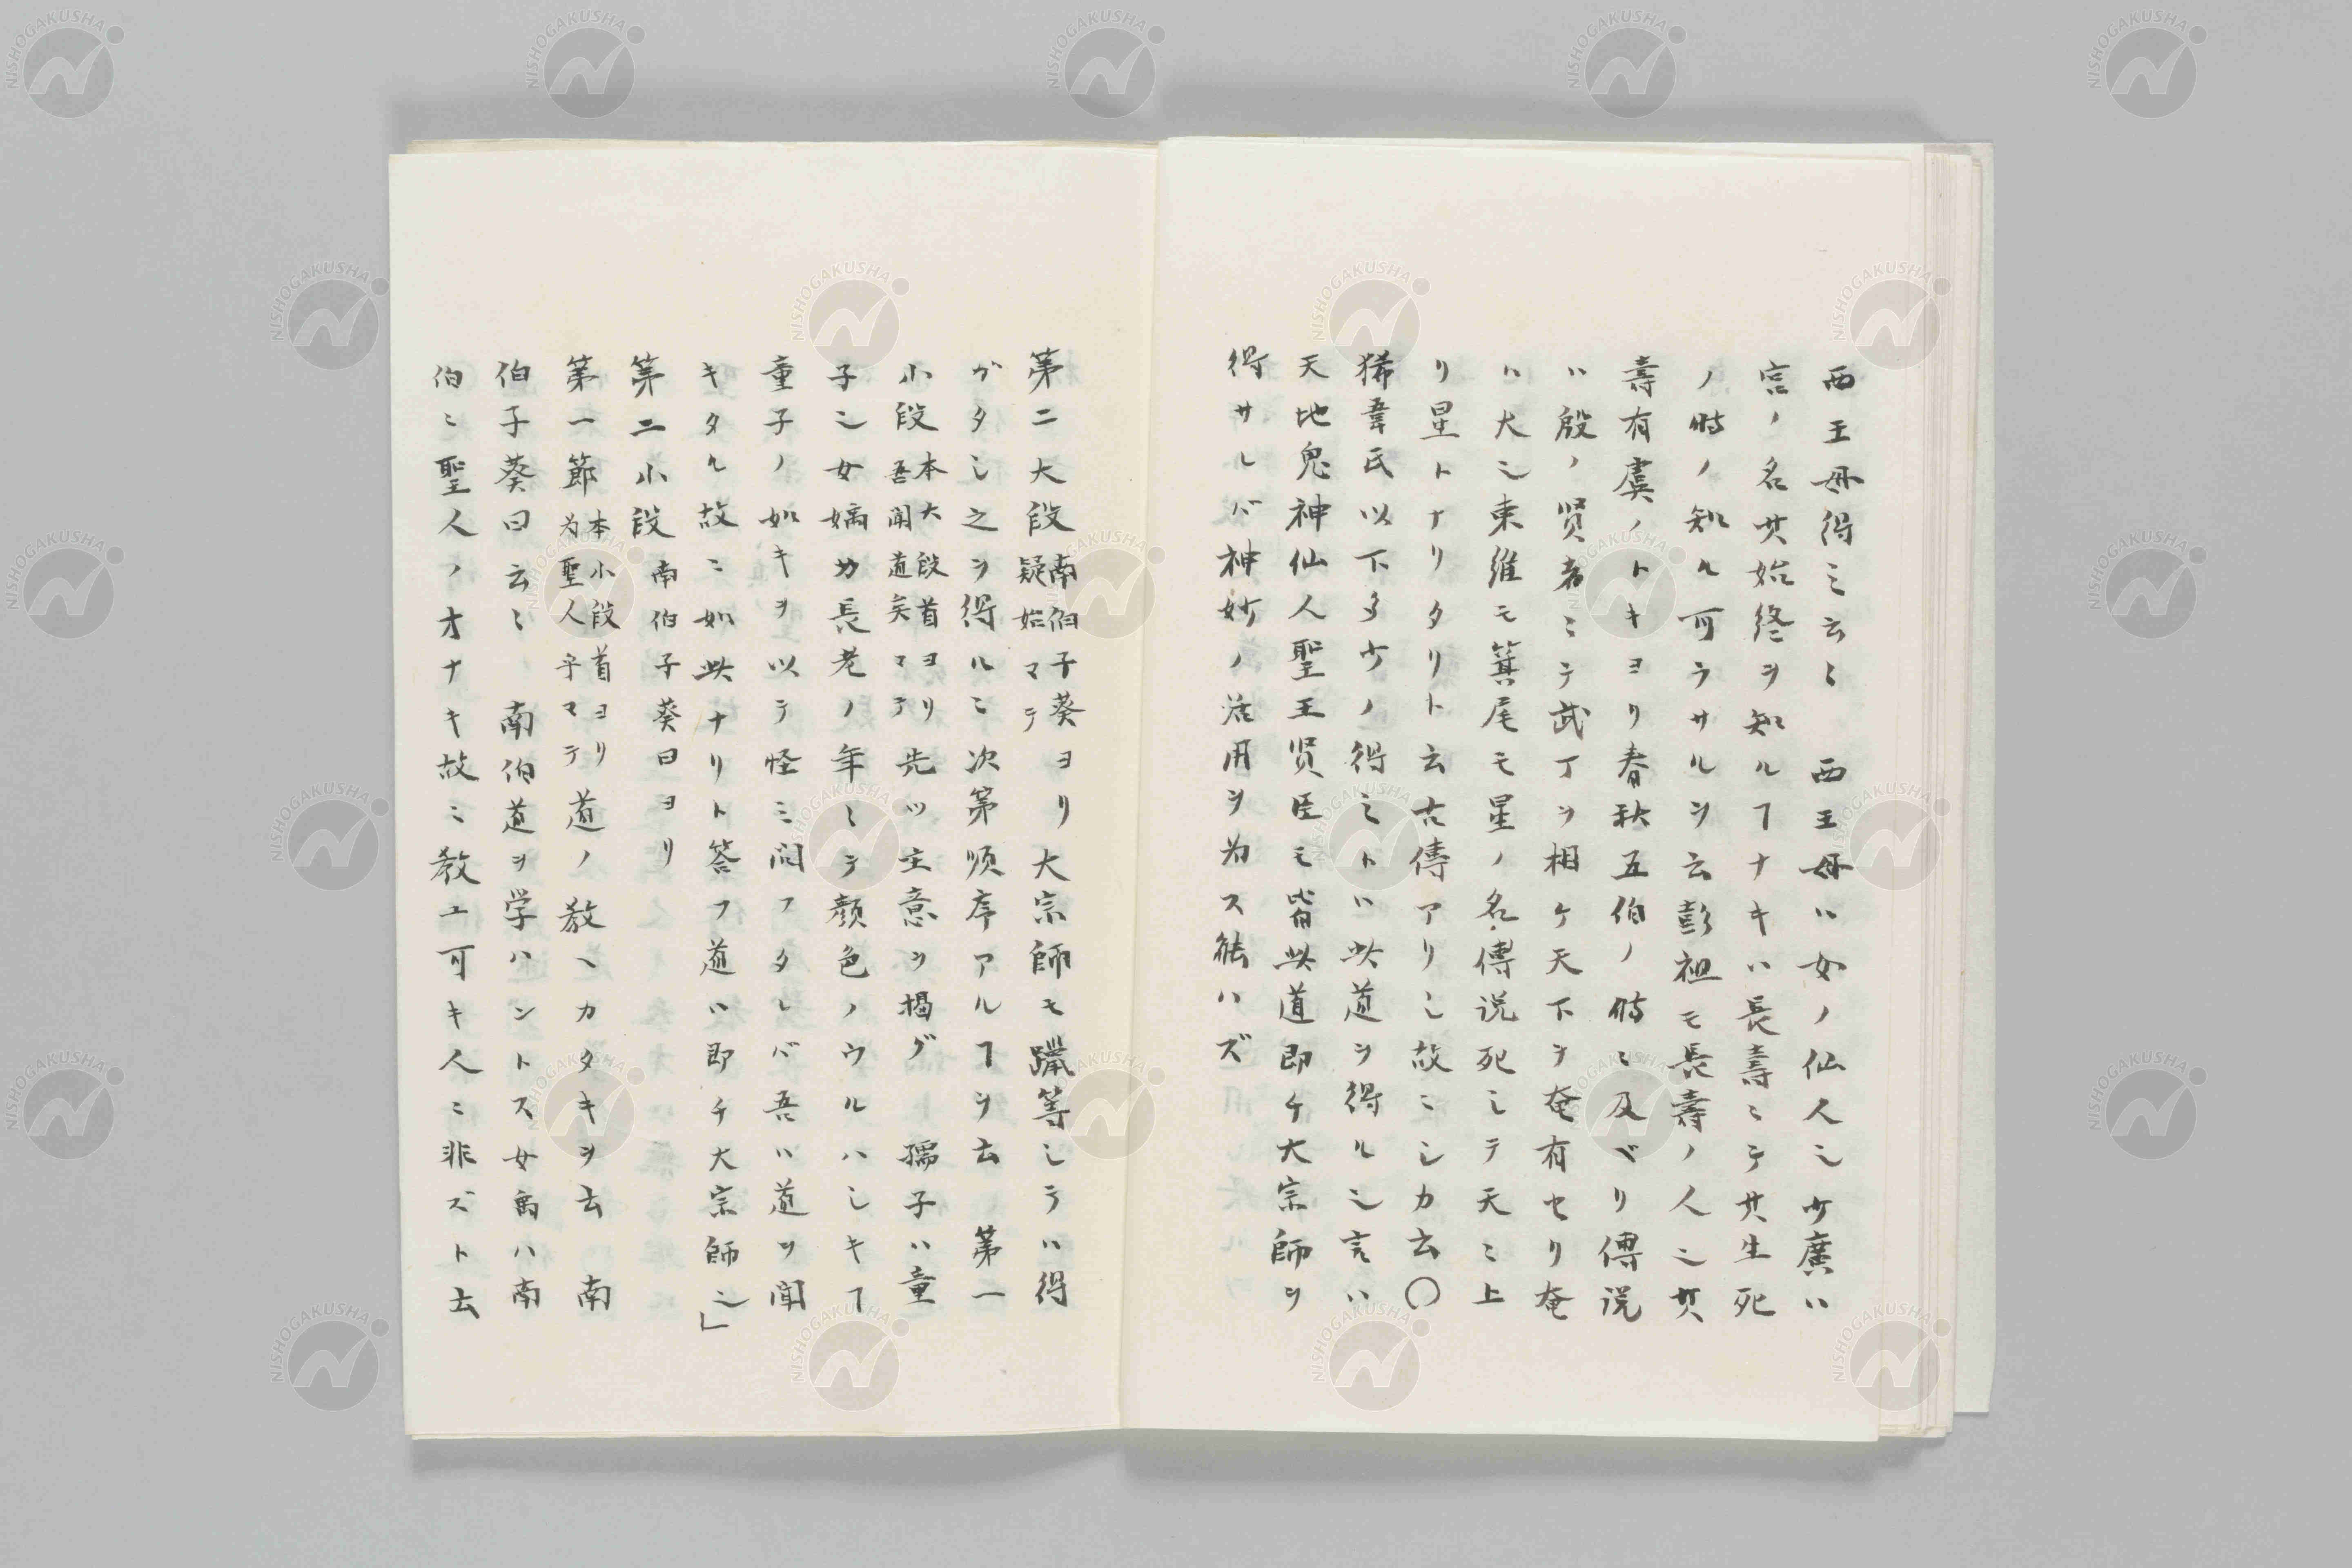 西王母得之云〻　西王母ハ女ノ仙人也少廣ハ
宮ノ名其始終ヲ知ルヿナキハ長壽ニテ其生死
ノ時ノ知ル可ラサルヲ云彭祖モ長壽ノ人也其
壽有虞ノトキヨリ春秋五伯ノ時ニ及ベリ傅説
ハ殷ノ賢者ニテ武丁ヲ相ケ天下ヲ奄有セリ奄
ハ大也東維モ箕尾モ星ノ名傅説死シテ天ニ上
リ星トナリタリト云古傳アリシ故ニシカ云〇
狶韋氏以下多少ノ得之トハ此道ヲ得ル也言ハ
天地鬼神仙人聖王贤臣モ皆此道即ケ大宗師ヲ
得サレバ神妙ノ活用ヲ为ス能ハズ
第二大段南伯子葵ヨリ疑始マテ大宗師モ躐等シテハ得
ガタシ之ヲ得ルニ次第順序アルヿヲ云　第一
小段本大段首ヨリ吾聞道矣マテ先ツ主意ヲ揭グ　孺子ハ童
子也女媯カ長老ノ年ニシテ顏色ノウルハシキヿ
童子ノ如キヲ以テ怪ミ問フタレバ吾ハ道ヲ聞
キタル故ニ如此ナリト答フ道ハ即チ大宗師也」
第二小段南伯子葵曰ヨリ
第一節本小段首ヨリ为聖人乎マテ道ノ教ヘカタキヲ云　南
伯子葵曰云〻　南伯道ヲ学ハントス女禹ハ南
伯ニ聖人ノ才ナキ故ニ教エ可キ人ニ非ズト云
NISHOGAKUSHA